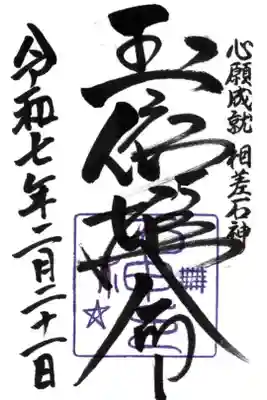 心願成就 相差石神
玉依姫命
令和七年二月二十一日